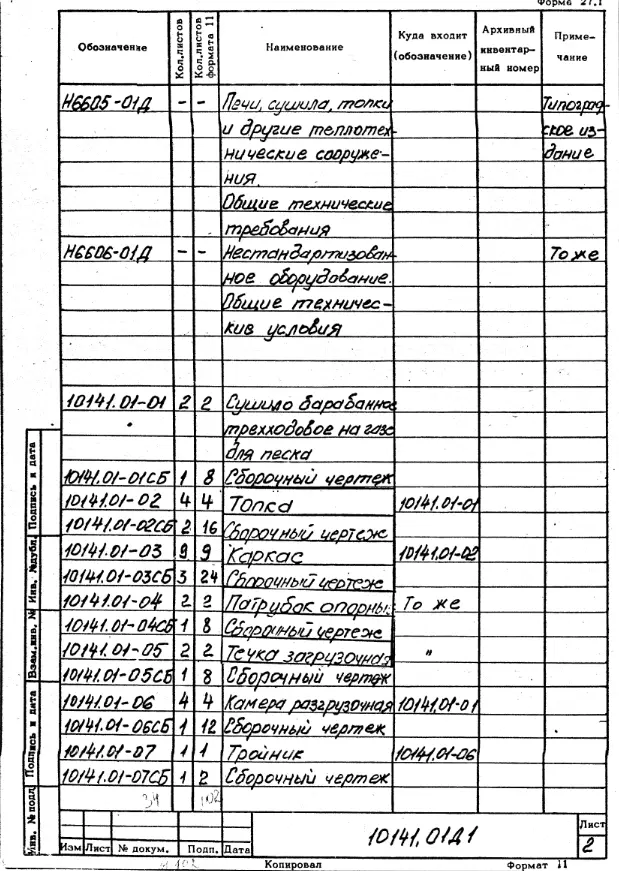 Форма 27.1
Обозначение Кол.листов Кол.листов формата 11 Наименование Куда входит (обозначение) Архивный инвентарный номер Примечание
Н6605-01Д - - Печи, сушила, топки Типограф-
и другие теплотех- ское из-
нические сооруже- дание
ния.
Общие технические
требования
Н6606-01Д - - Нестандартизован- То же
ное оборудование.
Общие техничес-
кие условия
10141.01-01 2 2 Сушило барабанное
трехходовое на газе
для песка
10141.01-01СБ 1 8 Сборочный чертеж
10141.01-02 4 4 Топка 10141.01-01
10141.01-02СБ 2 16 Сборочный чертеж
10141.01-03 9 9 Каркас 10141.01-02
10141.01-03СБ 3 24 Сборочный чертеж
10141.01-04 2 2 Патрубок опорный То же
10141.01-04СБ 1 8 Сборочный чертеж
10141.01-05 2 2 Течка загрузочная "
10141.01-05СБ 1 8 Сборочный чертеж
10141.01-06 4 4 Камера разгрузочная 10141.01-01
10141.01-06СБ 1 12 Сборочный чертеж
10141.01-07 1 1 Тройник 10141.01-06
10141.01-07СБ 1 2 Сборочный чертеж
34 102
Инв. № подл. Подпись и дата Взам.инв. № Инв. №дубл. Подпись и дата
10141.01Д1
Лист
2
Изм Лист № докум. Подп. Дата
Копировал Формат 11